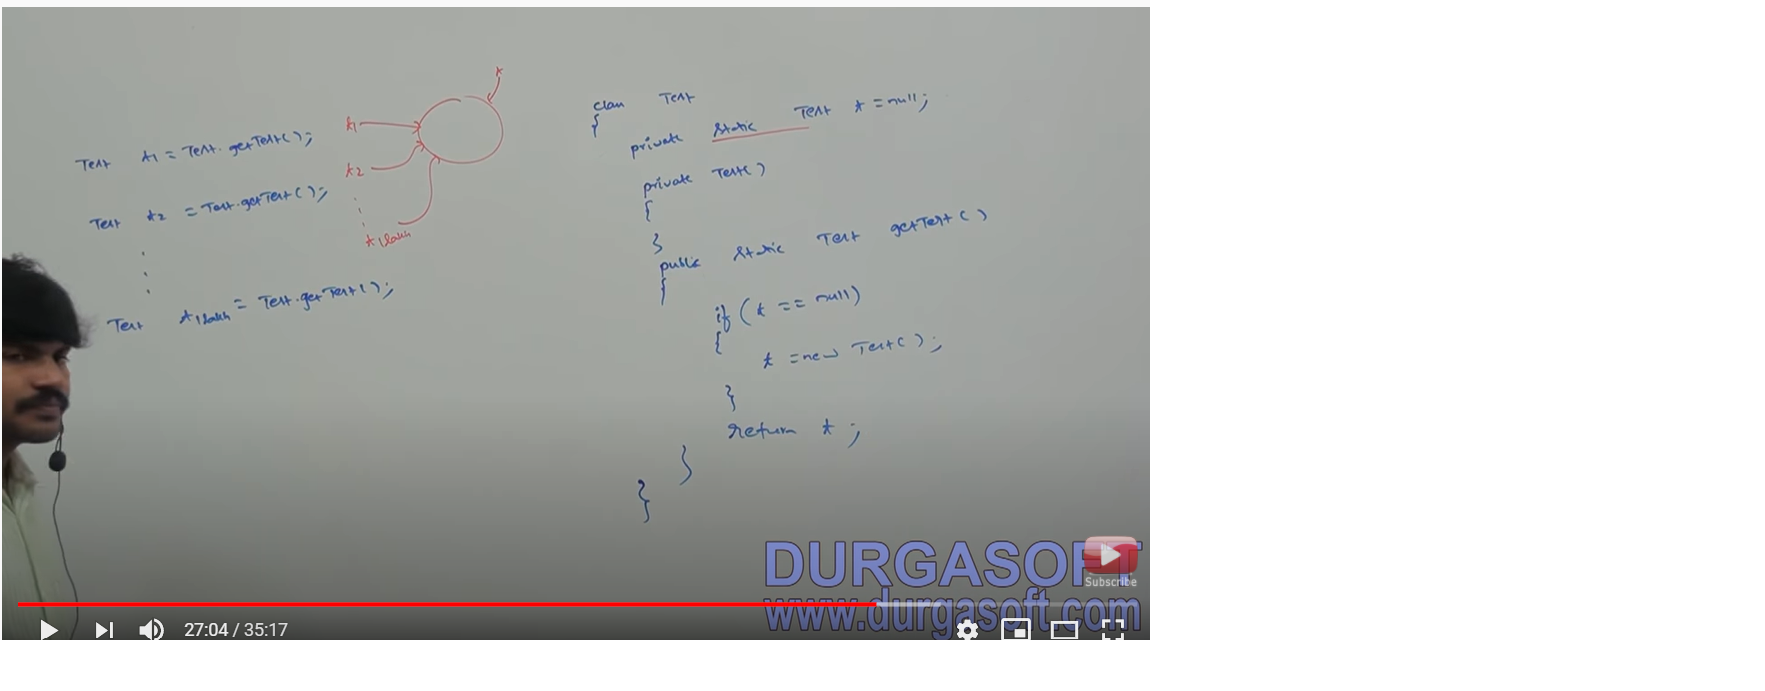 Test t1 = Test.getTest();
Test t2 = Test.getTest();
Test t1lakh = Test.getTest();
t
t1
t2
t1lakh
class Test
{
private static Test t = null;
private Test()
{
}
public static Test getTest()
{
if (t == null)
{
t = new Test();
}
return t;
}
}
DURGASOFT
www.durgasoft.com
Subscribe
27:04 / 35:17